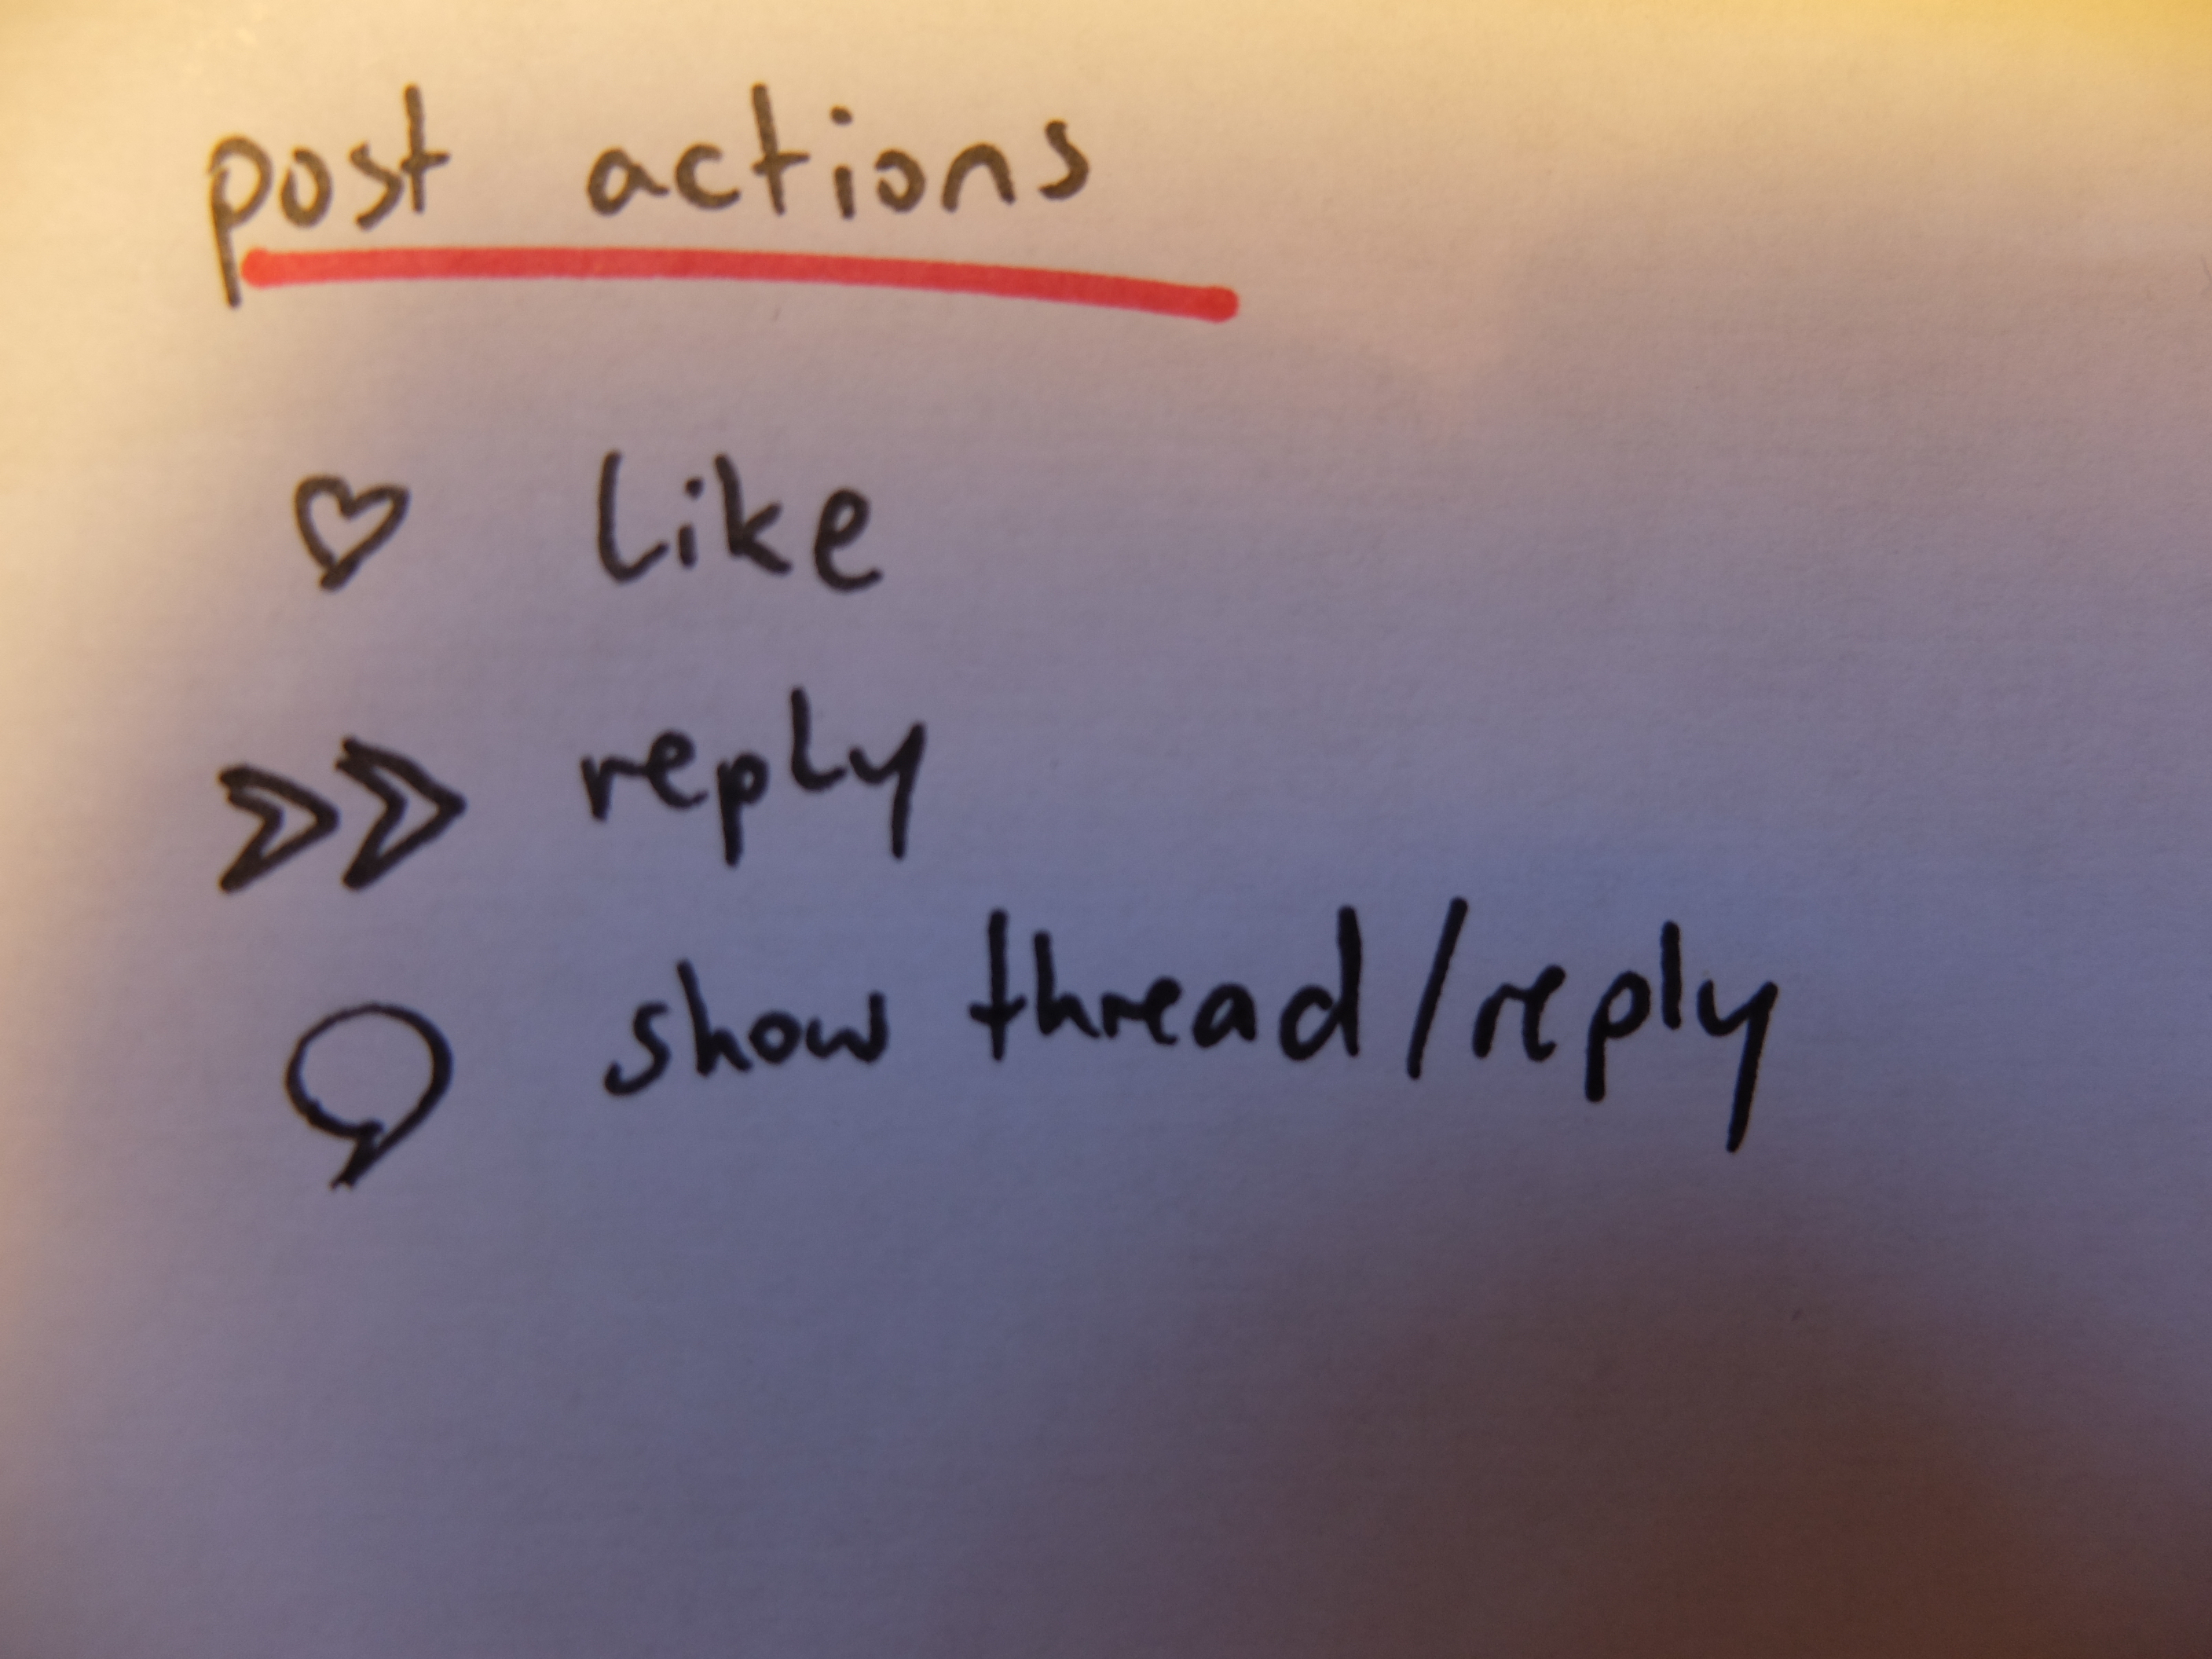 post actions
like
reply
show thread/reply